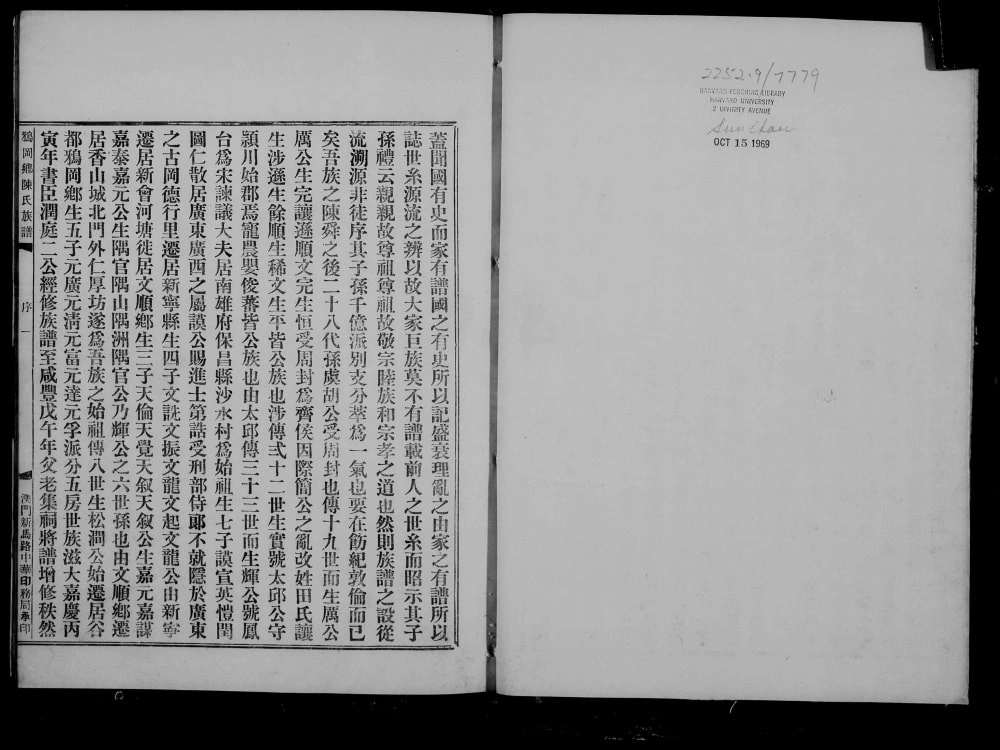 2252.9/7779
HARVARD-YENCHING LIBRARY
HARVARD UNIVERSITY
2 DIVINITY AVENUE
Sun Chau
OCT 15 1969
蓋聞國有史而家有譜國之有史所以記盛衰理亂之由家之有譜所以
誌世系源流之辨以故大家巨族莫不有譜載前人之世系而昭示其子
孫禮云親親故尊祖尊祖故敬宗睦族和宗孝之道也然則族譜之設從
流溯源非徒序其子孫千億派別支分萃為一氣也要在飭紀敦倫而已
矣吾族之陳舜之後二十八代孫虞胡公受周封也傳十九世而生厲公
厲公生完讓遜順文完生恒受周封為齊侯因際簡公之亂改姓田氏讓
生涉遜生餘順生稀文生平皆公族也涉傳弍十二世生實號太邱公守
潁川始郡焉寵農嬰俊蕃皆公族也由太邱傳三十三世而生輝公號鳳
台為宋諫議大夫居南雄府保昌縣沙水村為始祖生七子謨宣英愷閏
圖仁散居廣東廣西之屬謨公賜進士第誥受刑部侍郎不就隱於廣東
之古岡德行里遷居新寧縣生四子文詵文振文龍文起文龍公由新寧
遷居新會河塘徙居文順鄉生三子天倫天覺天叙天叙公生嘉元嘉謀
嘉泰嘉元公生隅官隅山隅洲隅官公乃輝公之六世孫也由文順鄉遷
居香山城北門外仁厚坊遂為吾族之始祖傳八世生松澗公始遷居谷
都鴉岡鄉生五子元廣元清元富元達元孚派分五房世族滋大嘉慶丙
寅年書臣潤庭二公經修族譜至咸豐戊午年父老集祠將譜增修秩然
鴉岡鄉陳氏族譜
序
一
澳門新馬路中華印務局承印